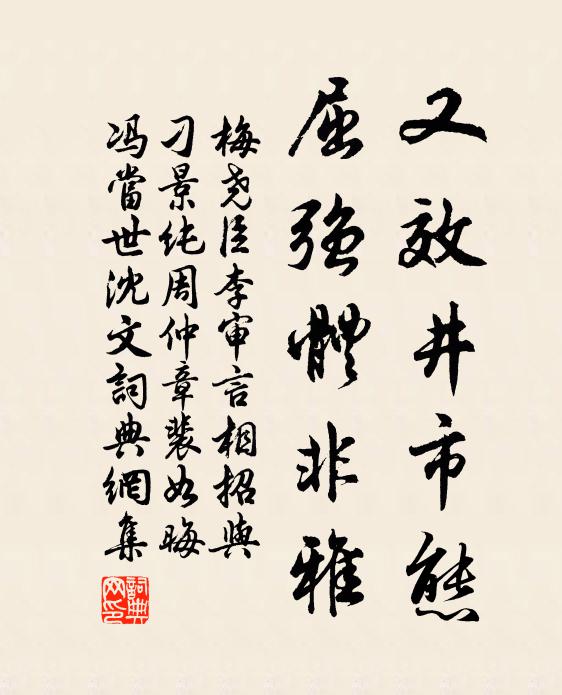 又效井市態
屈強體非雅
梅尧臣李审言相招與
刁景纯周仲章裴如晦
冯當世沈文詞典網集
詞典
网印